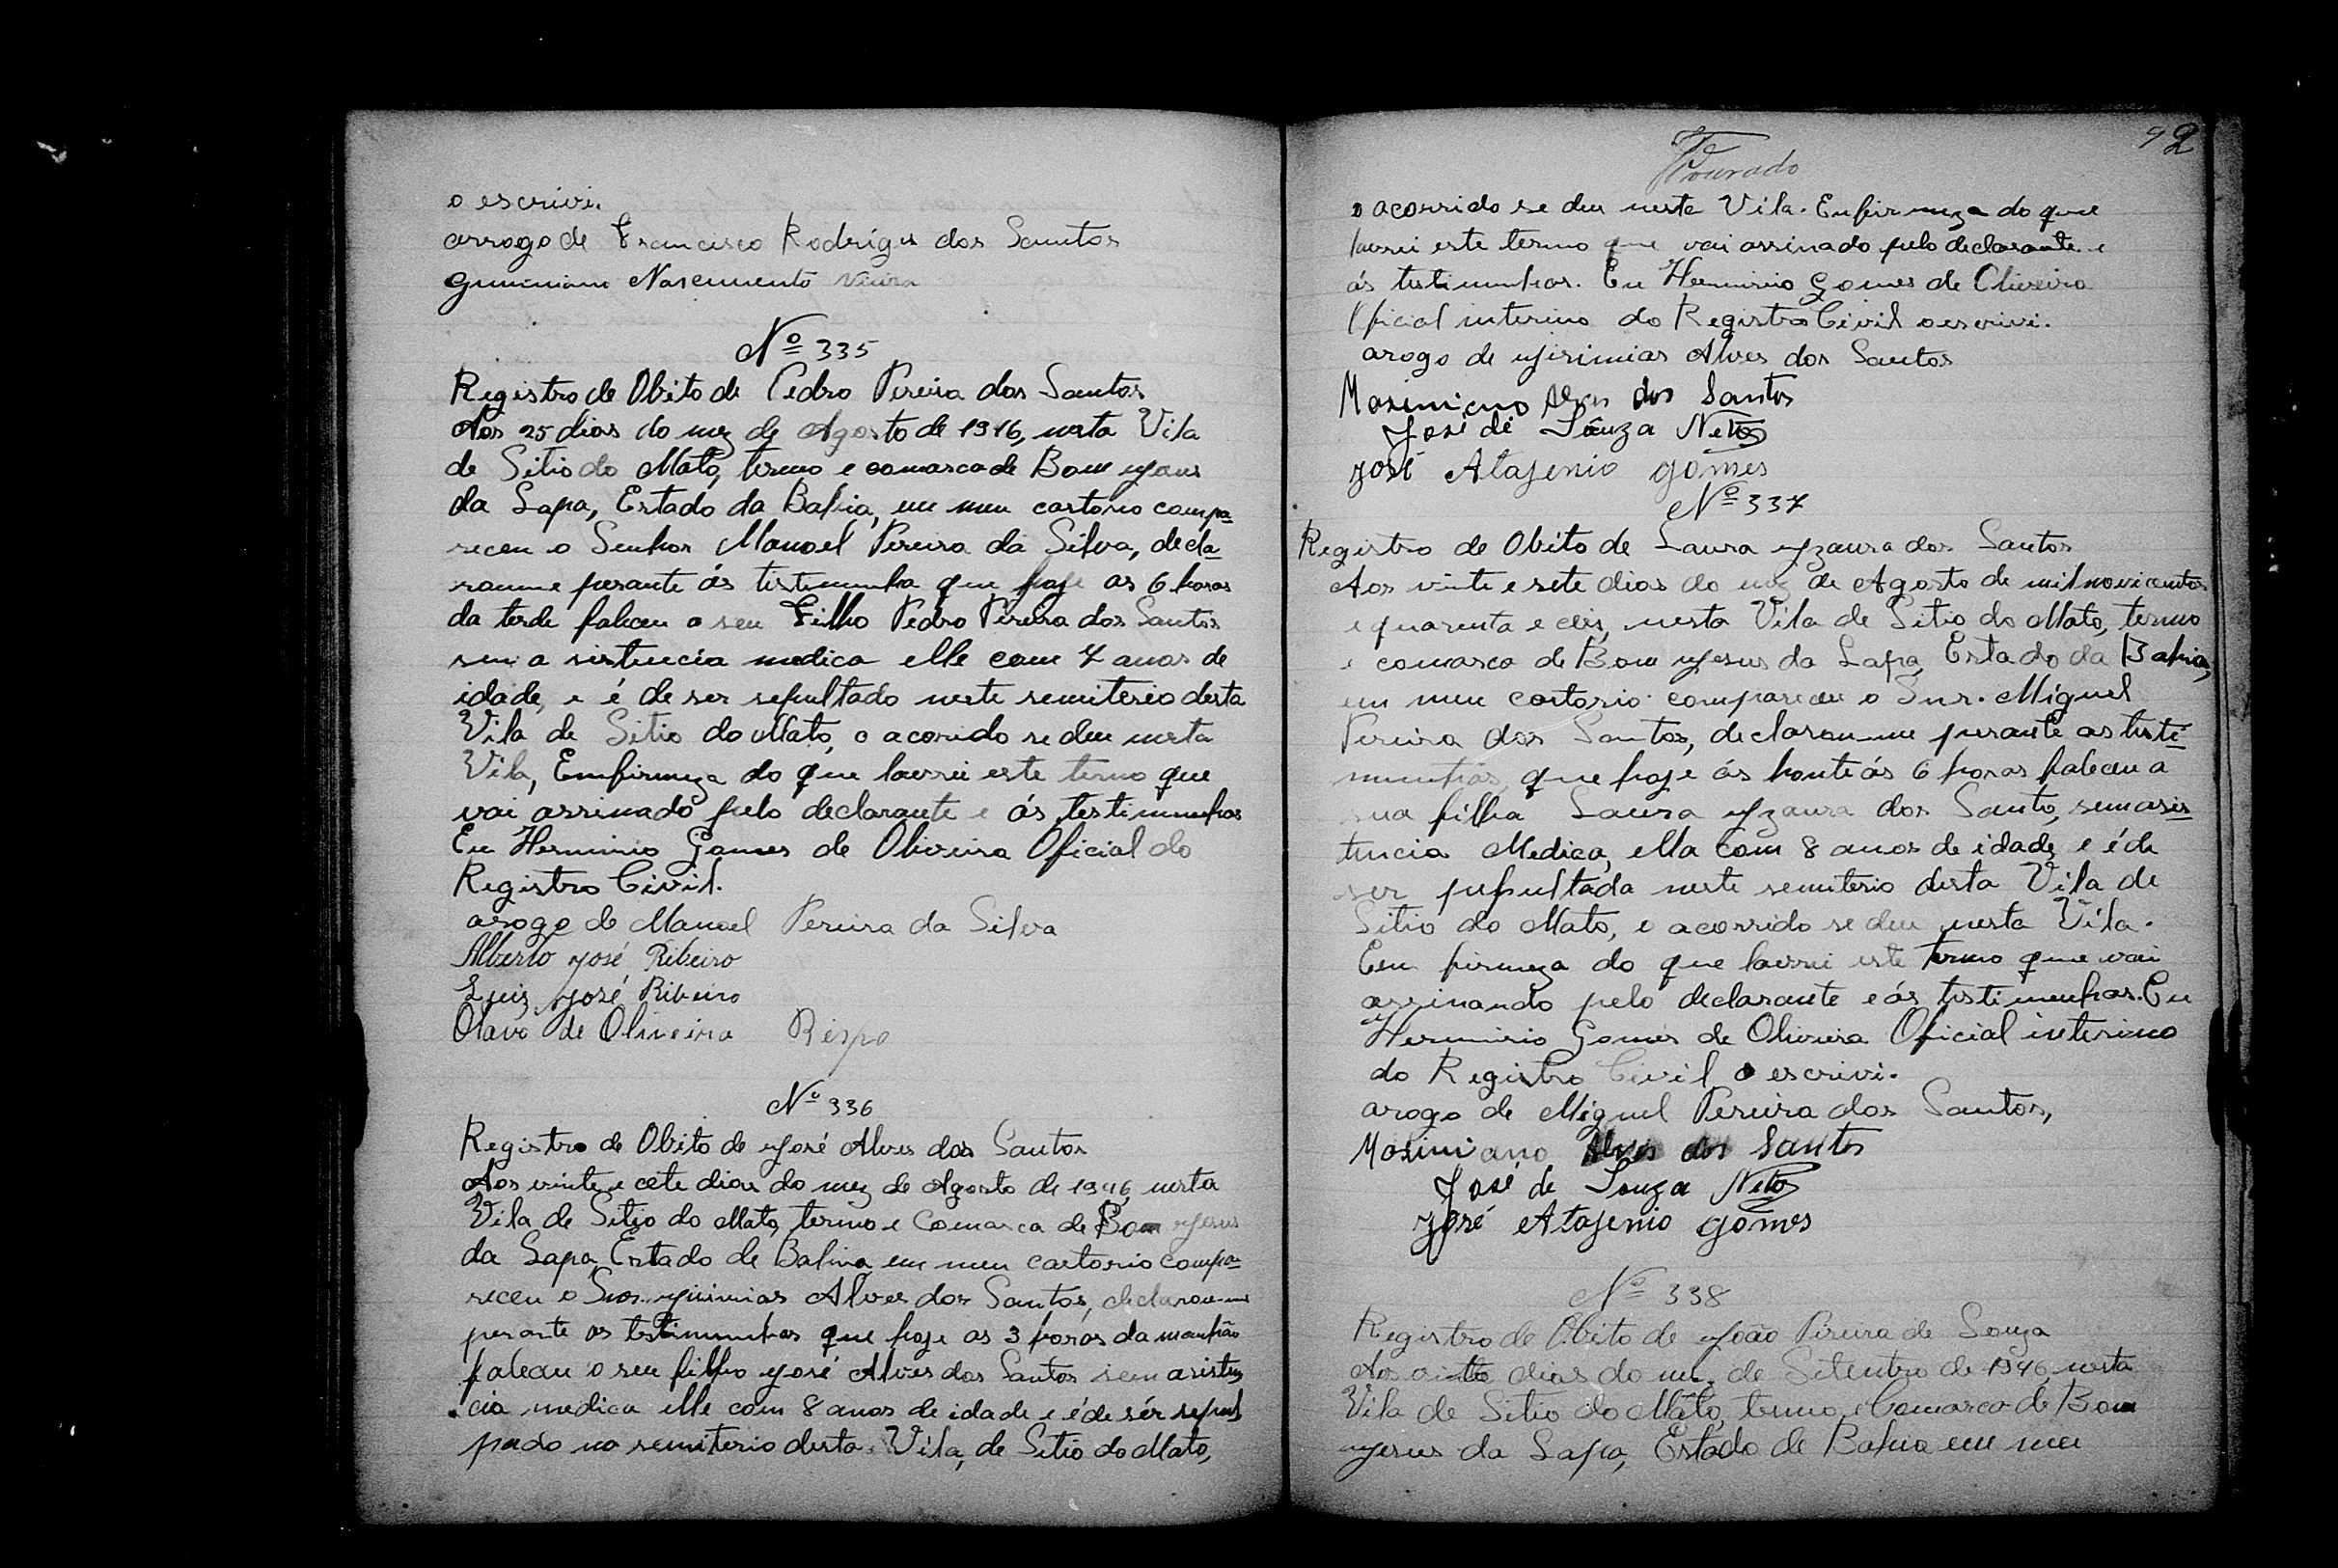 o escrivi.
arrogo de Francisco Rodrígus dos Santos
Nascimento Vieira
Nº 335
Registro de Obito de Pedro Pereira dos Santos
Aos 25 dias do mez de Agosto de 1946, nesta Vila
de Sitio do Mato, termo e comarca de Bom Jesus
da Lapa, Estado da Bahia, em meu cartorio compa=
receu o Senhor Manoel Pereira da Silva, decla=
roume perante ás testimunha que hoje as 6 horas
da tarde faleceu o seu Filho Pedro Pereira dos Santos
sem a sistencia medica elle com 7 anos de
idade, e é de ser sepultado neste semiterio desta
Vila de Sitio do Mato, o acorrido se deu nesta
Vila, Emfirmeza do que lavrei este termo que
vai assinado pelo declarante e ás testimunhas
Eu Herminio Gomes de Oliveira Oficial do
Registro Civil.
arogo de Manoel Pereira da Silva
Alberto José Ribeiro
Luiz José Ribeiro
Olavo de Oliveira Rispo
Nº 336
Registro de Obito de José Alves dos Santos
Aos vinte e cete dias do mez de Agosto de 1946, nesta
Vila de Sitio do Mato, termo e Comarca de Bom Jesus
da Lapa, Estado de Bahia, em meu cartorio compa=
receu o Snr. Alves dos Santos, declarou-me
perante as testimunhas que hoje as 3 horas da manhão
faleceu o seu filho José Alves dos Santos sem asisten
cia medica elle com 8 anos de idade e é de sér sepul
pado no semiterio desta Vila, de Sitio do Mato,
92
Fe
Dourado
o acorrido se deu nesta Vila. Enfirmeza do que
lavrei este termo que vai assinado pelo declarante e
ás testimunhas. Eu Herminio Gomes de Oliveira
Oficial interino do Registro Civil o escrivi.
arogo de Jirimias Alves dos Santos
Maximiano Alves dos Santos
José de Souza Neto
José Atagenio gomes
Nº 337
Registro de Obito de Laura Yzaura dos Santos
Aos vinte e sete dias do mez de Agosto de mil novicentos
e quarenta e ceis, nesta Vila de Sitio do Mato, termo
e comarca de Bom Jesus da Lapa, Estado da Bahia,
em meu cartorio compareceu o Snr. Míguel
Pereira dos Santos, declarou-me perante as testi=
munhas, que hoje ás honte ás 6 horas faleceu a
sua filha Laura Yzaura dos Santo, sem asis=
tencia Medica, ella com 8 anos de idade, e é de
ser sepultada neste semiterio desta Vila de
Sitio do Mato, o acorrido se deu nesta Vila.
Em firmeza do que lavrei este termo que vai
assinando pelo declarante e ás testimunhas. Eu
Herminio Gomes de Oliveira Oficial interino
do Registro Civil o escrivi.
arogo de Miguel Pereira dos Santos,
Maximiano Alves dos Santos
José de Souza Neto
José Atagenio gomes
Nº 338
Registro de Obito de João Pireira de Souza
Aos dias do mez de Setembro de 1946, nesta
Vila de Sitio do Mato, termo e Comarca de Bom
Jesus da Lapa, Estado de Bahia em meu